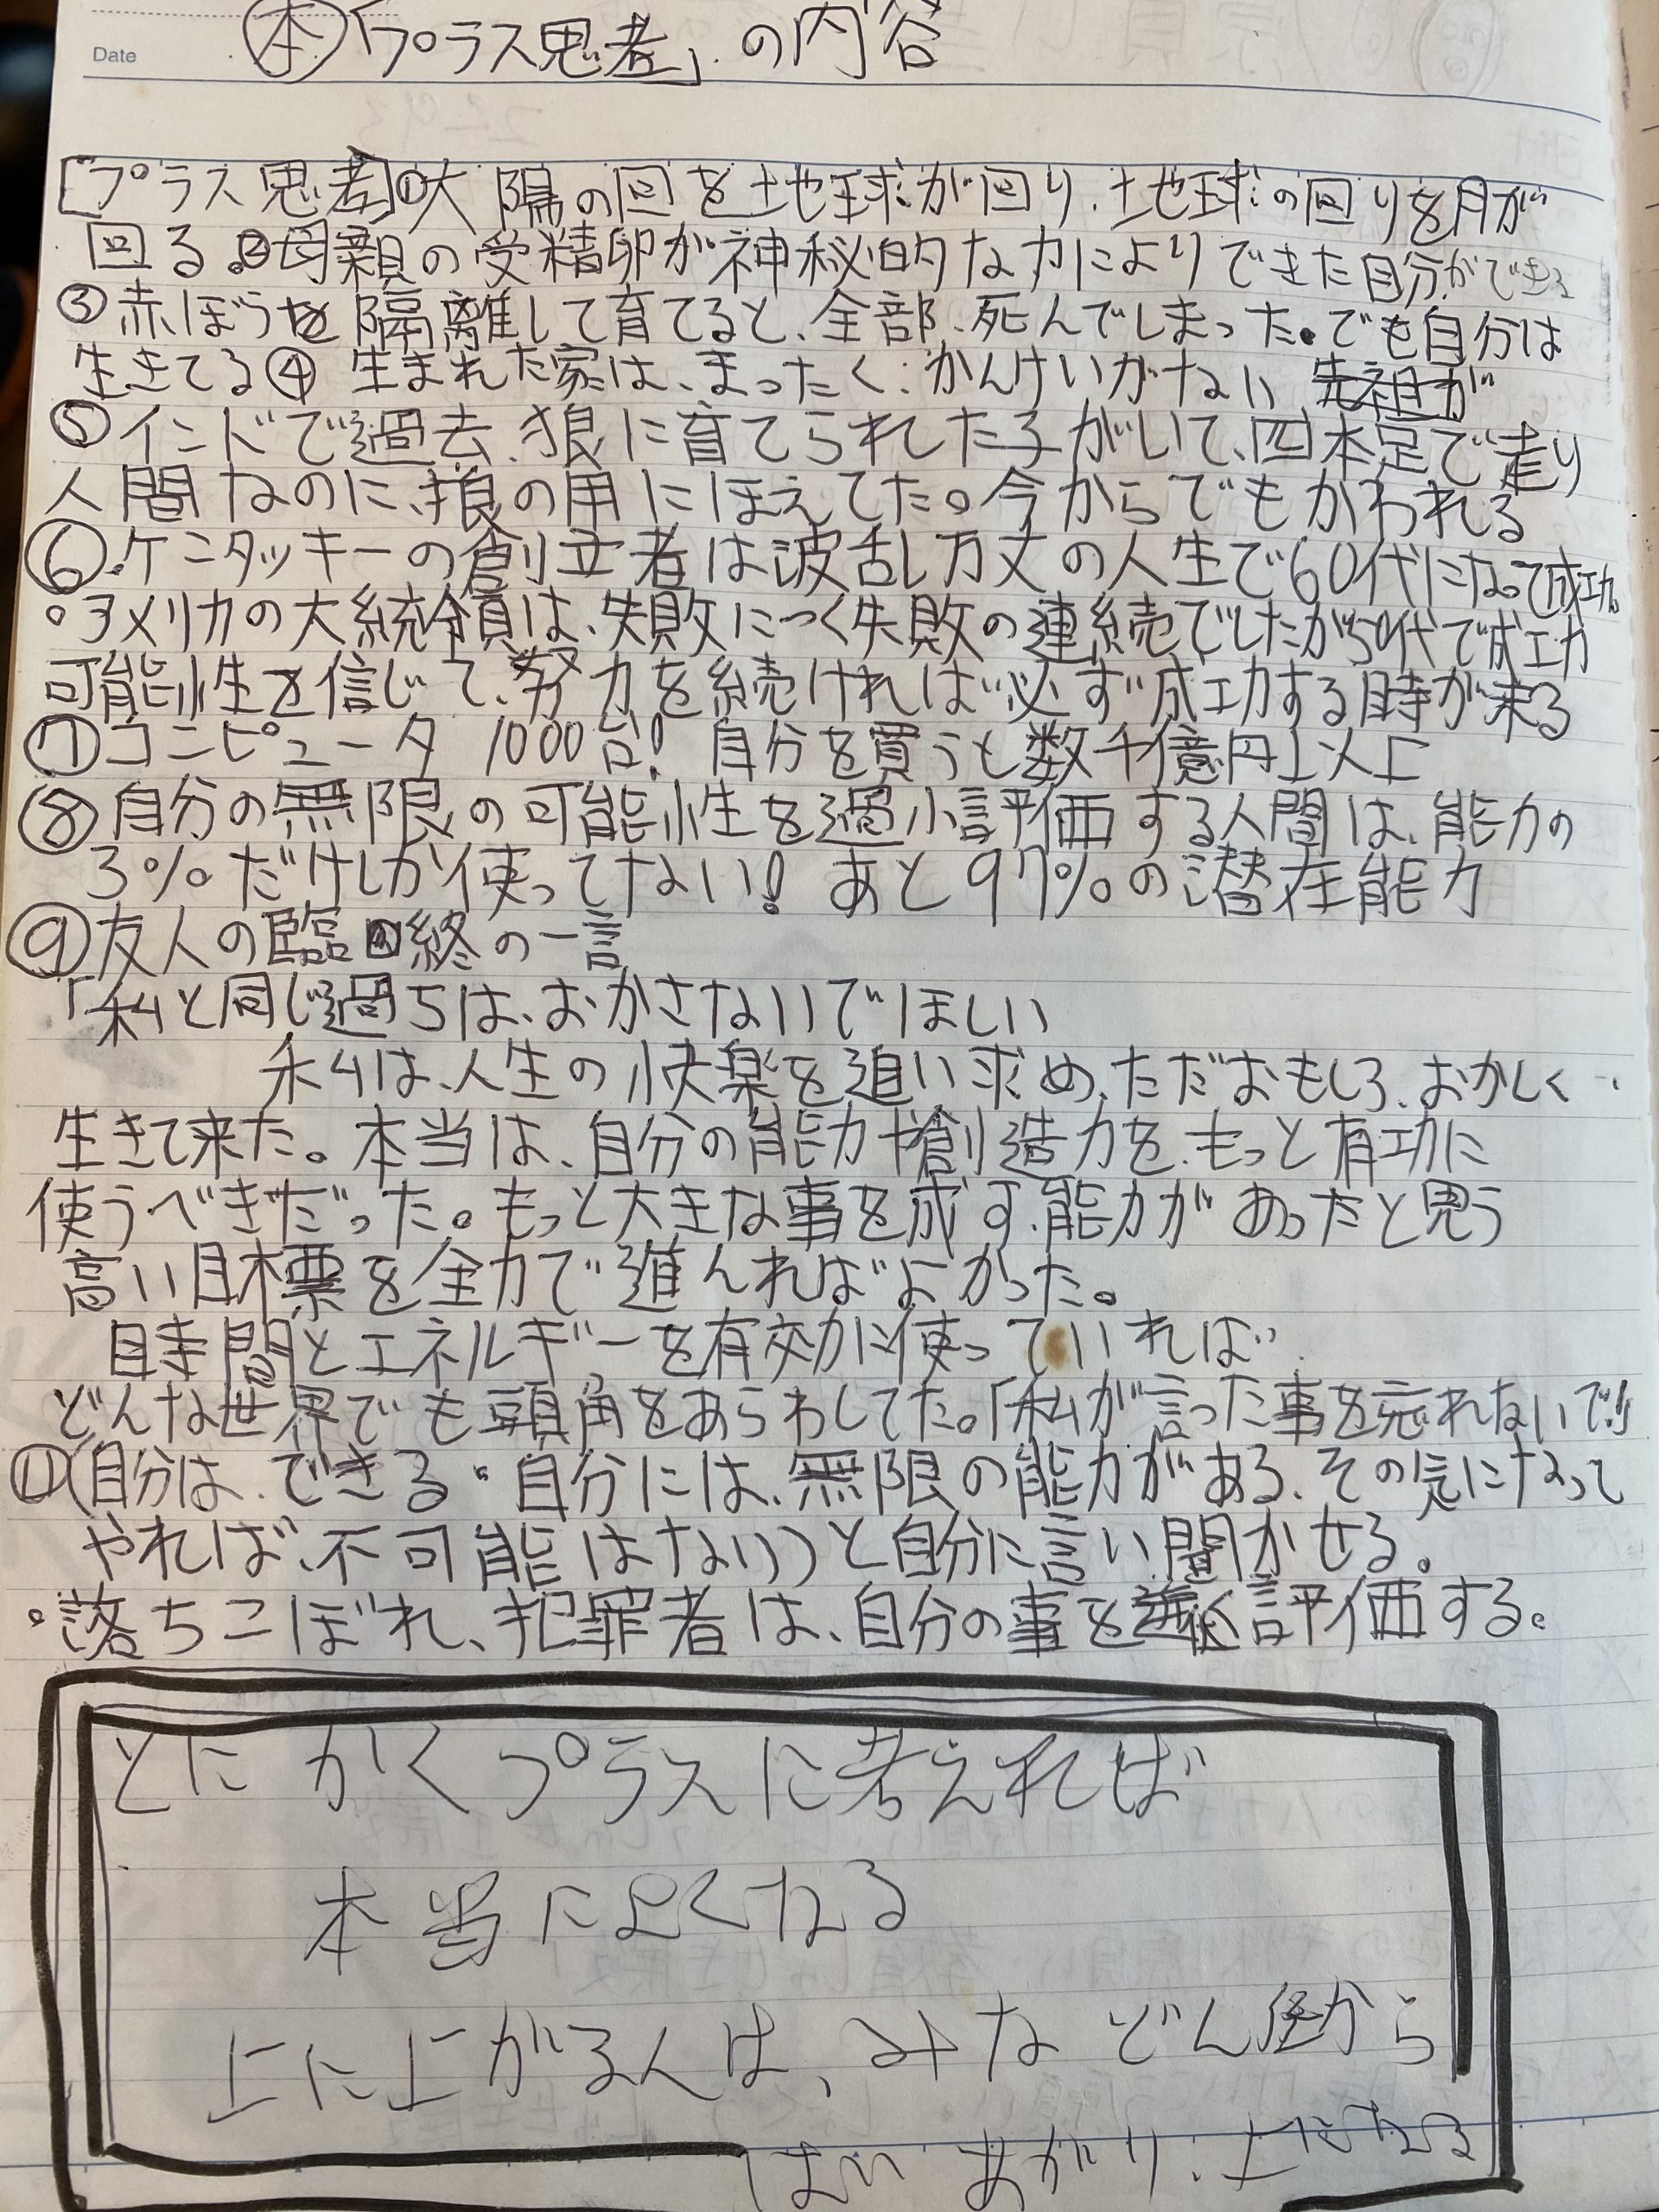 Date
㊍「プラス思考」の内容
[プラス思考]①大陽の回を土地球が回り、土地球の回りを月が
回る。②母親の受精卵が神秘的な力によりできた自分ができる
③赤ぼうを隔離して育てると、全部、死んでしまった。でも自分は
生きてる④ 生まれた家は、まったく、かんけいがない 先祖が
⑤インドで過去、狼に育てられた子がいて、四本足で走り
人間なのに、狼の用にほえてた。今からでもかわれる
⑥ケンタッキーの創立者は波乱万丈の人生で60代になって成功。
。アメリカの大統領は、失敗につく失敗の連続でしたが50代で成功
可能性を信じて、努力を続ければ必ず成功する時が来る
⑦コンピュータ 1000台! 自分を買うと数千億円以上
⑧自分の無限の可能性を過小評価する人間は、能力の
3%だけしか使ってない! あと97%の潜在能力
⑨友人の臨終の一言
「私と同じ過ちは、おかさないでほしい
私は、人生の快楽を追い求め、ただおもしろ、おかしく
生きて来た。本当は、自分の能力や創造力を、もっと有功に
使うべきだった。もっと大きな事を成す、能力があったと思う
高い目標を全力で進んればよかった。
時間とエネルギーを有効に使っていれば
どんな世界でも頭角をあらわしてた。「私が言った事を忘れないで」
⑪(自分は、できる。自分には、無限の能力がある、その気になって
やれば、不可能はない)と自分に言い聞かせる。
。落ちこぼれ、犯罪者は、自分の事を 評価する。
とにかくプラスに考えれば
本当に良くなる
上に上がる人は、みなどん低から
はい あがり、上になる